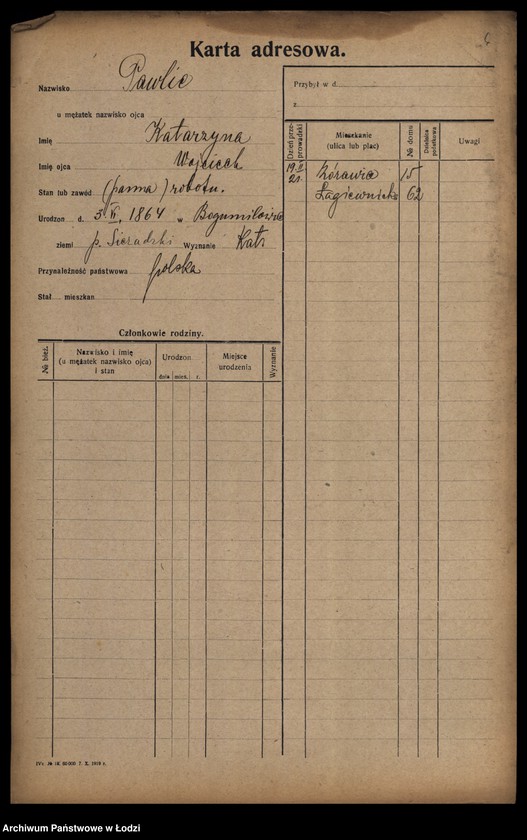 Karta adresowa.
Nazwisko Pawlic
u mężatek nazwisko ojca
Imię Katarzyna
Imię ojca Wojciech
Stan lub zawód (panna) robotn.
Urodzon d. 3 II. 1864 w
ziemi p. Sieradzki Wyznanie Kat.
Przynależność państwowa polska
Stał. mieszkan.
Członkowie rodziny.
№ bież.
Nazwisko i imię
(u mężatek nazwisko ojca)
i stan
Urodzon.
dnia mies. r.
Miejsce
urodzenia
Wyznanie
Przybył w d.
z
Dzień prze-
prowadzki
Mieszkanie
(ulica lub plac)
№ domu
Dzielnica
podatkowa
Uwagi
Żórawia 15
21. Łagiewnick. 62
Archiwum Państwowe w Łodzi